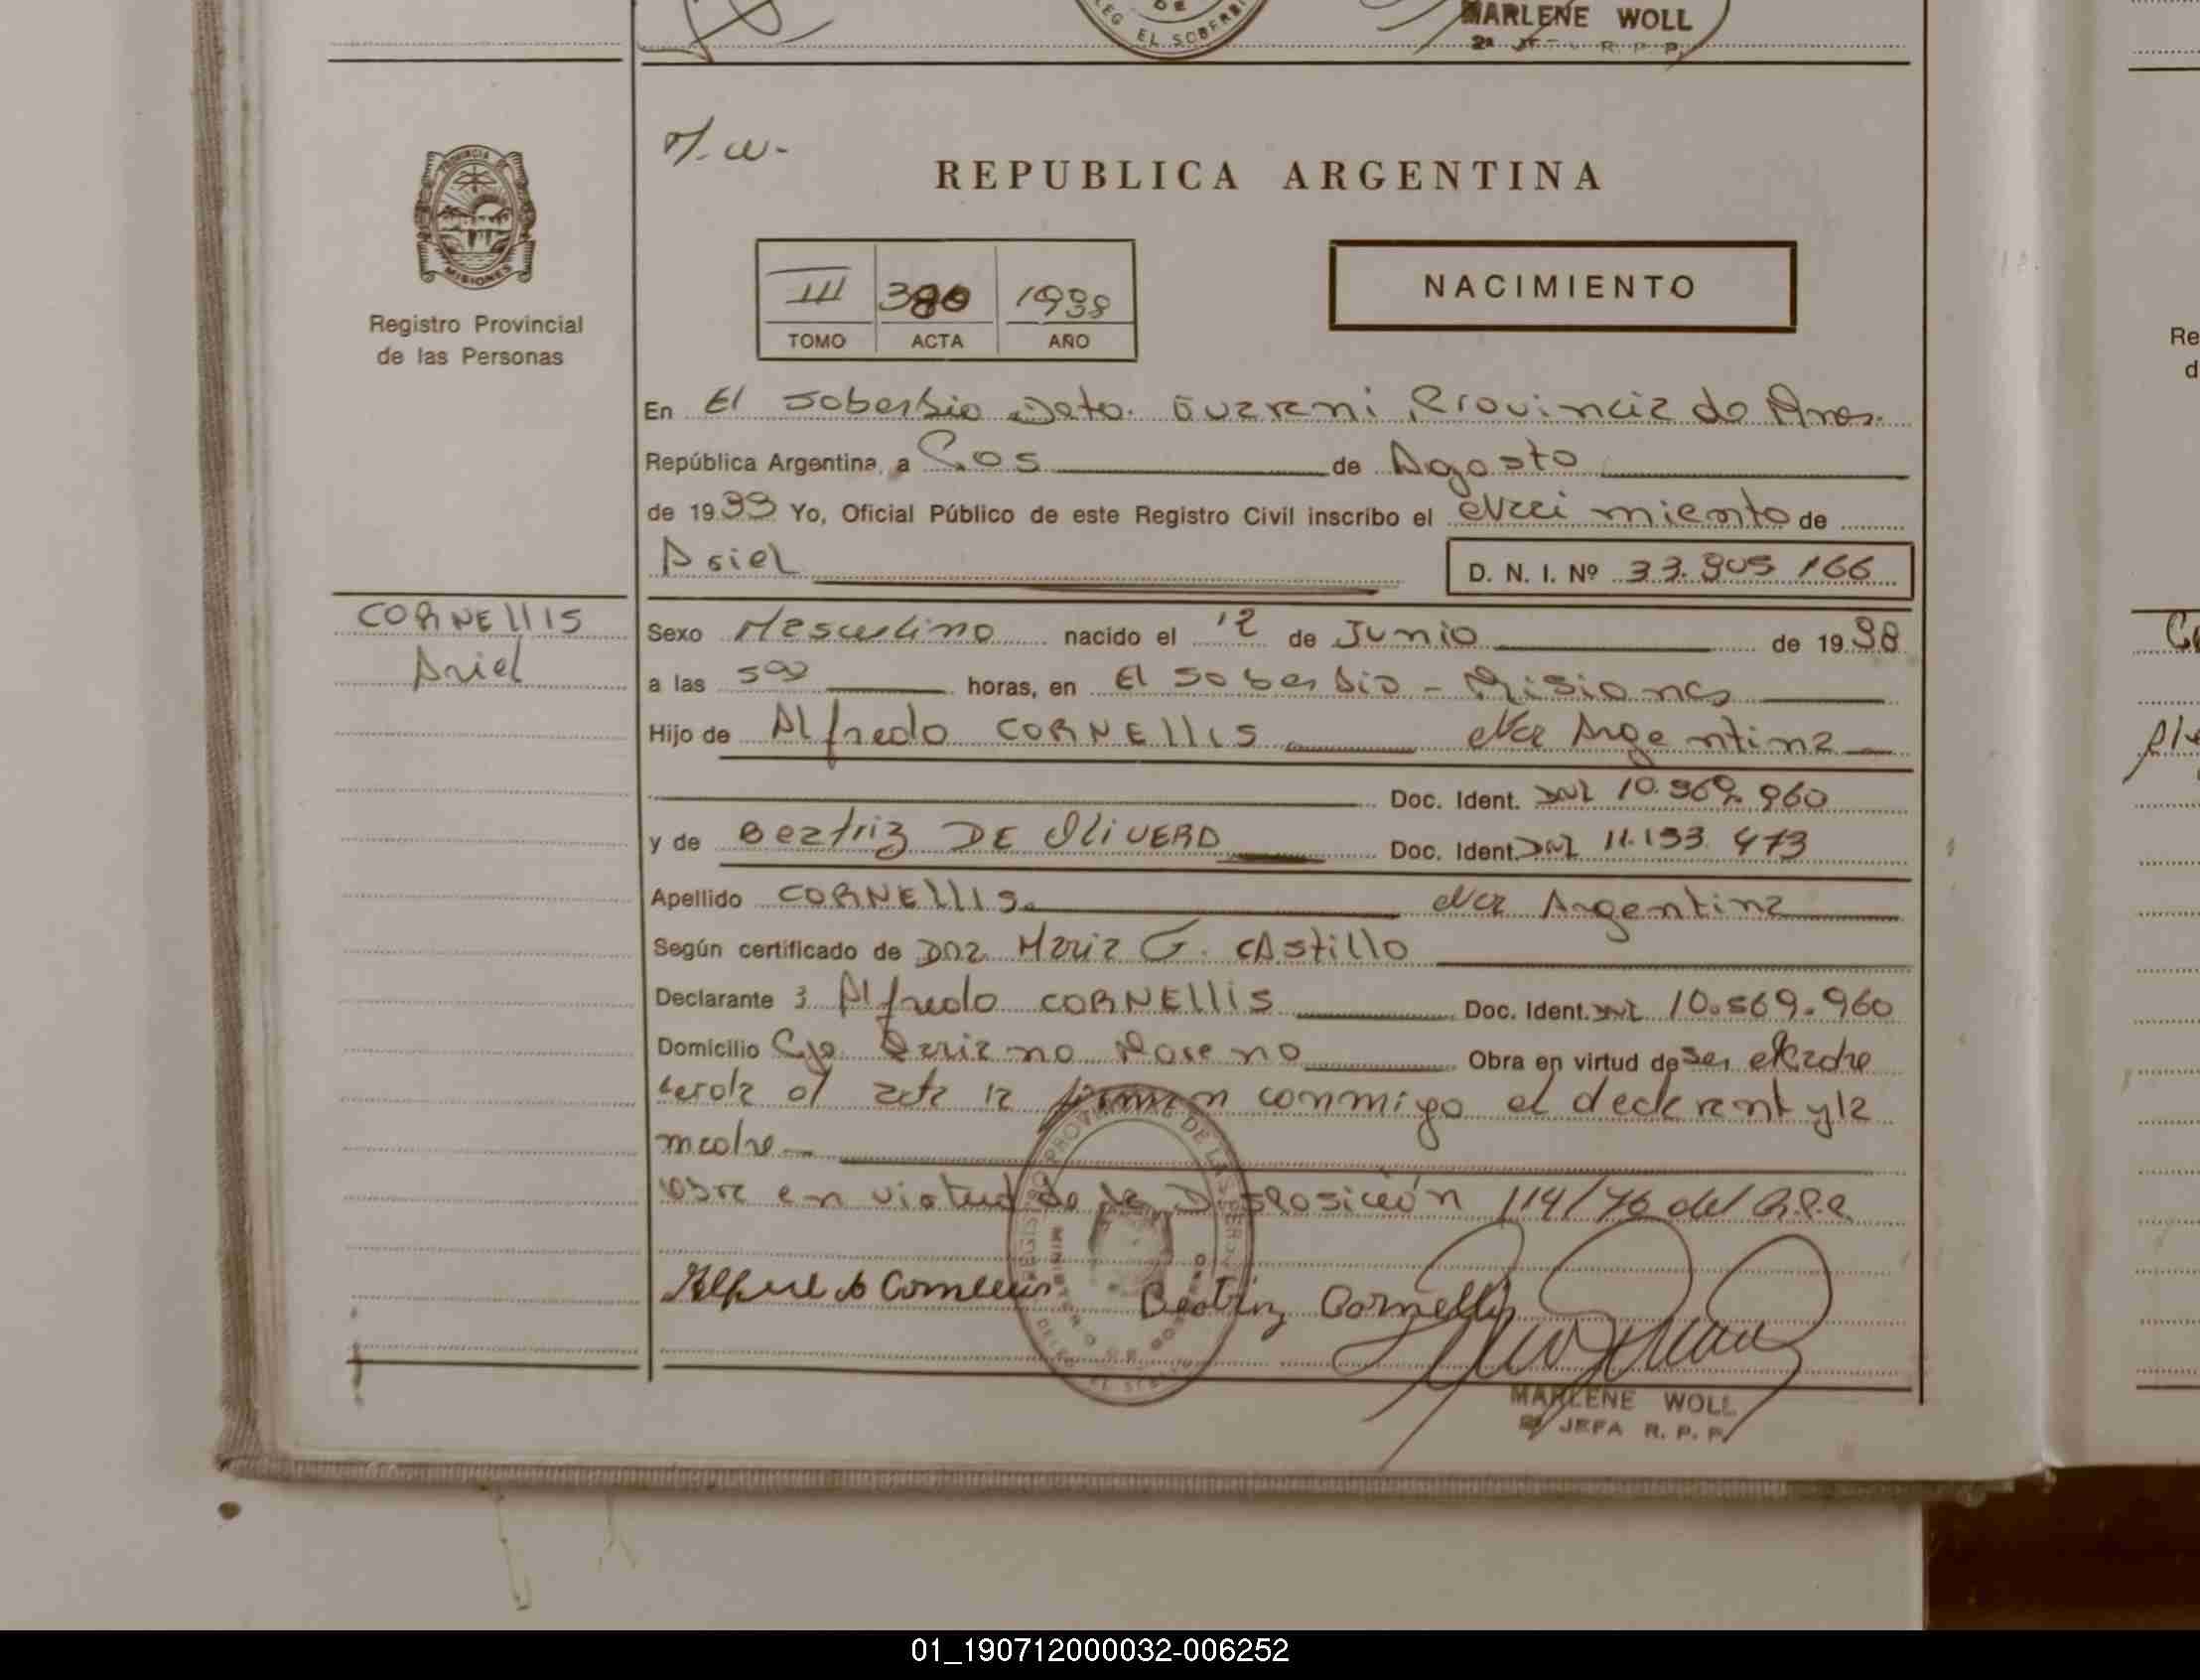 DE
REG EL SOBERBIO
MARLENE WOLL
2ª JEFA R. P. P.
M. W-
REPUBLICA ARGENTINA
PROVINCIA DE
MISIONES
Registro Provincial
de las Personas
III 380 1998
TOMO ACTA AÑO
NACIMIENTO
En El Soberbio Dpto. Guarani, Provincia de Mnes.
República Argentina, a Dos de Agosto
de 1999 Yo, Oficial Público de este Registro Civil inscribo el Naci miento de
Ariel
D. N. I. Nº 33.905 166
CORNELLIS
Ariel
Sexo Masculino nacido el 12 de Junio de 1998
a las 500 horas, en El Soberbio - Misiones
Hijo de Alfredo CORNELLIS Nac Argentina
Doc. Ident. DNI 10.569.960
y de Beatriz DE OLIVERA Doc. Ident. DNI 11.193.473
Apellido CORNELLIS Nac Argentina
Según certificado de Dra Maria G. CAstillo
Declarante Alfredo CORNELLIS Doc. Ident. DNI 10.569.960
Domicilio Mariano Moreno Obra en virtud de Ser el Padre
Leida el acta la firman conmigo el declarant y la
madre
Obra en virtud de la Disposición 114/76 del R.P.P.
Alfredo Cornellis Beatriz Cornellis
REGISTRO PROVINCIAL DE LAS PERSONAS
MARLENE WOLL
2ª JEFA R. P. P.
Re
d
01_190712000032-006252